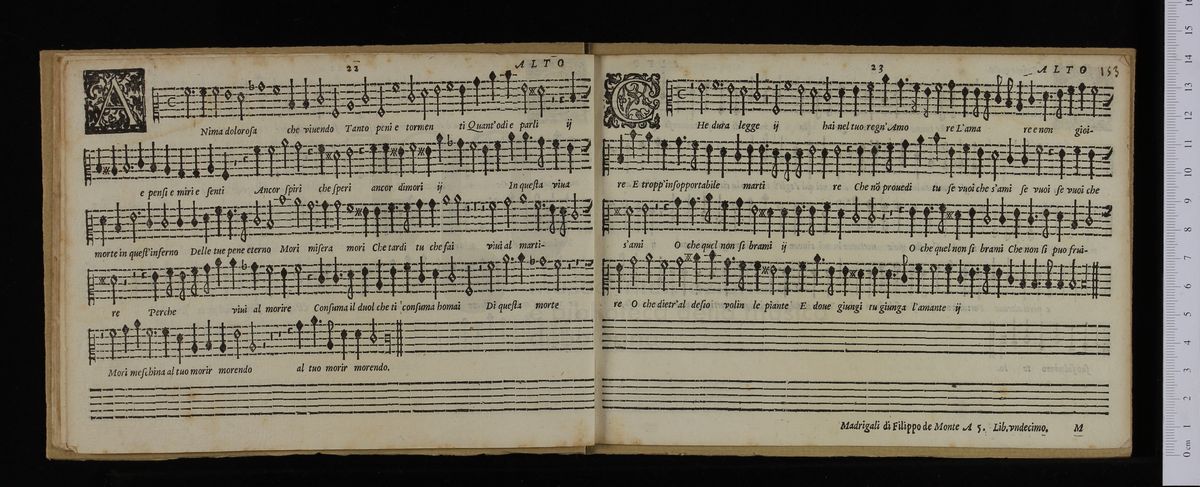 22 ALTO
A Nima dolorosa che viuendo Tanto peni e tormen ti Quant'odi e parli ij
e pensi e miri e senti Ancor spiri che speri ancor dimori ij In questa viua
morte in quest'inferno Delle tue pene eterno Mori misera mori Che tardi tu che fai viui al marti-
re Perche viui al morire Consuma il duol che ti consuma homai Di questa morte
Mori meschina al tuo morir morendo al tuo morir morendo.
23 ALTO 153
C He dura legge ij hai nel tuo regn'Amo re L'ama re e non gioi-
re E tropp'insopportabile marti re Che nõ prouedi tu se vuoi che s'ami se vuoi se vuoi che
s'ami O che quel non si brami ij O che quel non si brami Che non si puo frui-
re O che dietr'al desio volin le piante E doue giungi tu giunga l'amante ij
Madrigali di Filippo de Monte A 5. Lib. vndecimo. M
0 cm 1 2 3 4 5 6 7 8 9 10 11 12 13 14 15 16